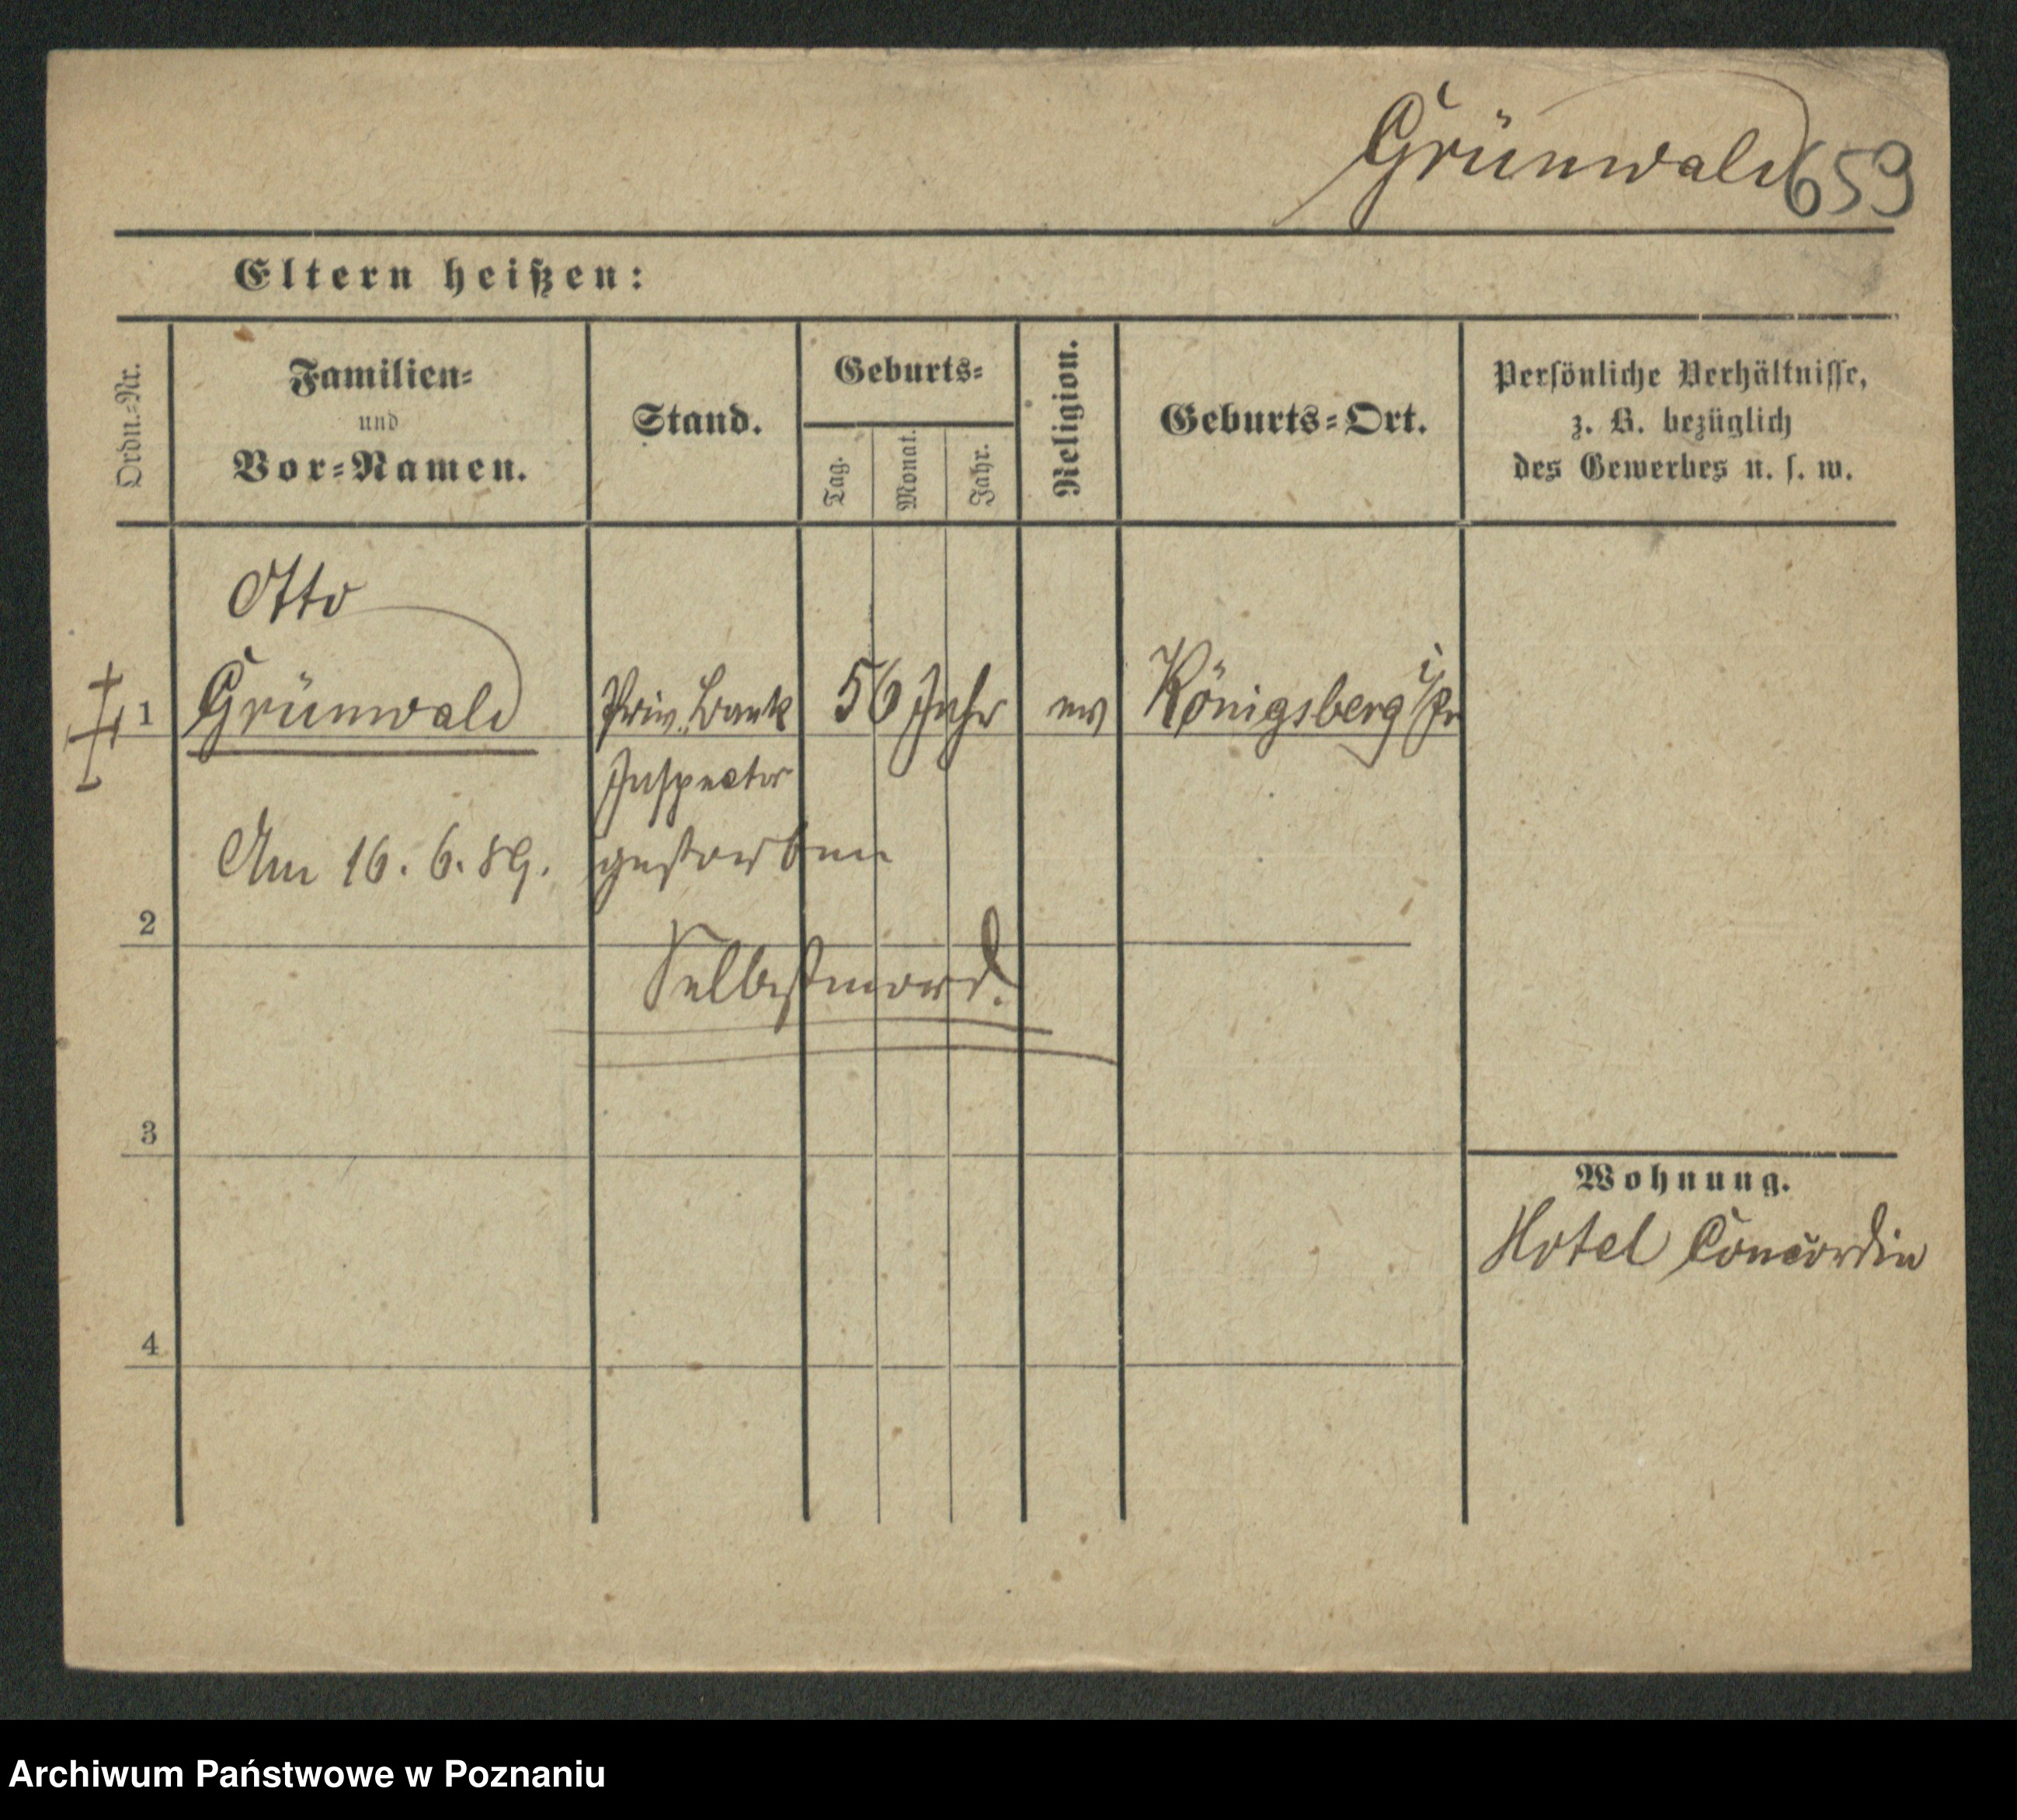 Grünwald 659
Eltern heißen:
Ordn.-Nr.
Familien-
und
Vor-Namen.
Stand.
Geburts-
Tag.
Monat.
Jahr.
Religion.
Geburts-Ort.
Persönliche Verhältnisse,
z. B. bezüglich
des Gewerbes u. s. w.
Otto
1 Grünwald Priv. Bank 56 Jahr ev Königsberg i/Pr
Inspector
Am 16. 6. 89. gestorben
2
Selbstmord.
3
Wohnung.
Hotel Concordia
4
Archiwum Państwowe w Poznaniu